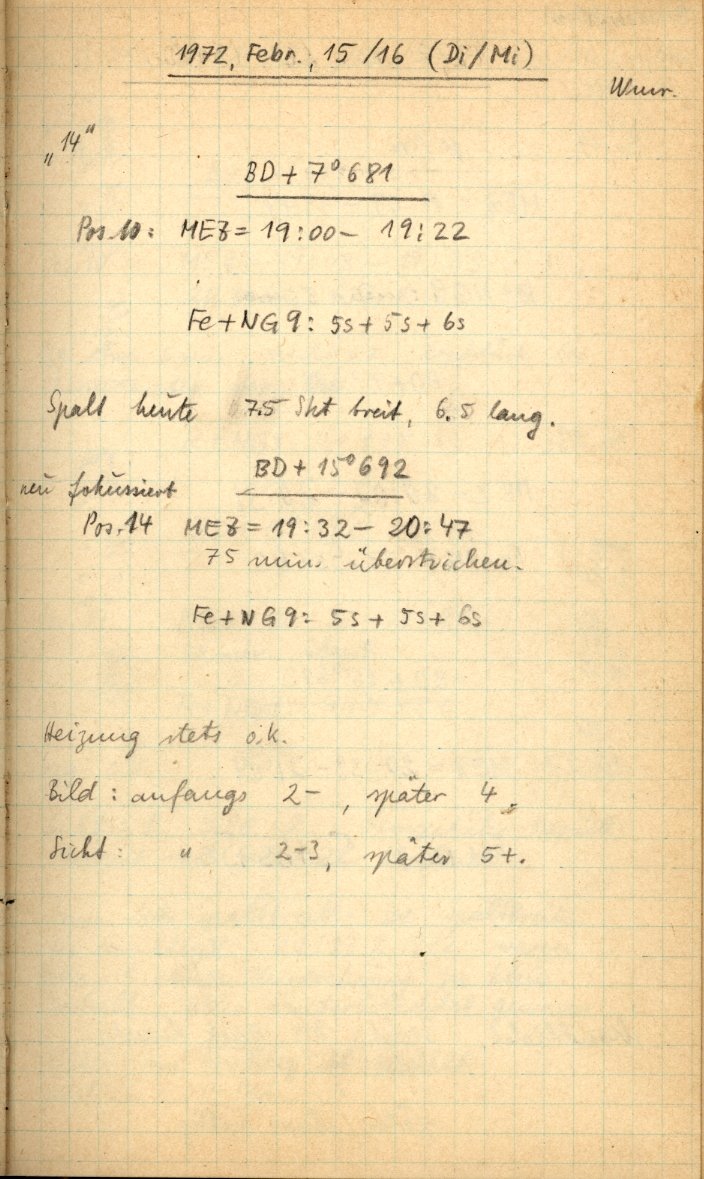 1972, Febr., 15/16 (Di/Mi)
„14"
BD + 7° 681
Pos. 10: MEZ = 19:00 – 19:22
Fe + NG9: 5s + 5s + 6s
Spalt heute 7.5 Skt breit, 6.5 lang.
BD + 15° 692
neu fokussiert
Pos. 14 MEZ = 19:32 – 20:47
75 min. überstrichen.
Fe + NG9: 5s + 5s + 6s
Heizung stets o.k.
Bild: anfangs 2–, später 4.
Sicht: " 2–3, später 5+.